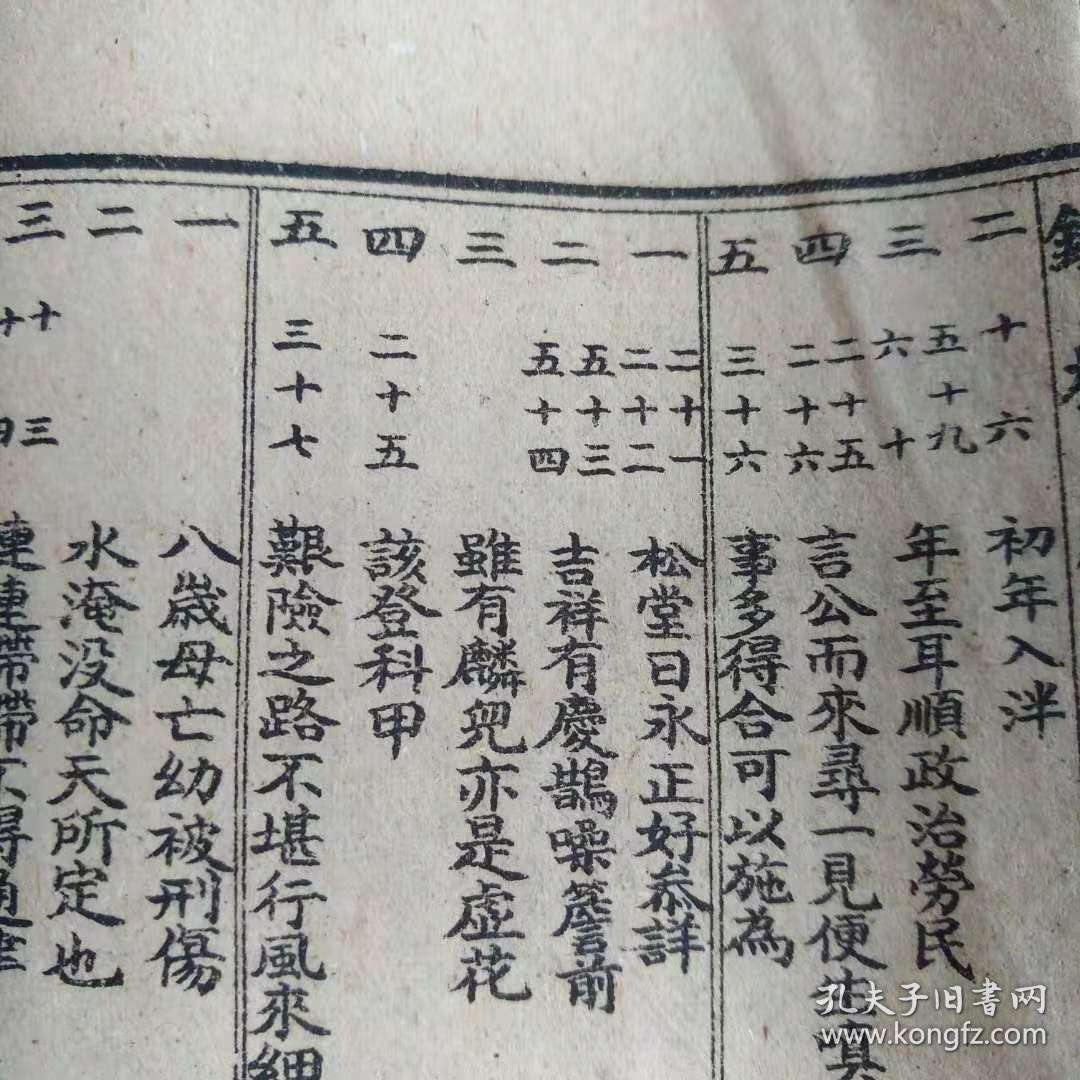 二 十六 初年入泮
三 五十九 六十 年至耳順政治勞民
四 二十五 二十六 言公而來尋一見便生嗔
五 三十六 事多得合可以施為
一 二十一 二十二 松堂日永正好叅詳
二 五十三 五十四 吉祥有慶鵲噪簷前
三 雖有麟兒亦是虛花
四 二十五 該登科甲
五 三十七 艱險之路不堪行風來細
一 八歲母亡幼被刑傷
二 水淹没命天所定也
三 十三 十四 連連帶帶不得
孔夫子旧書网
www.kongfz.com